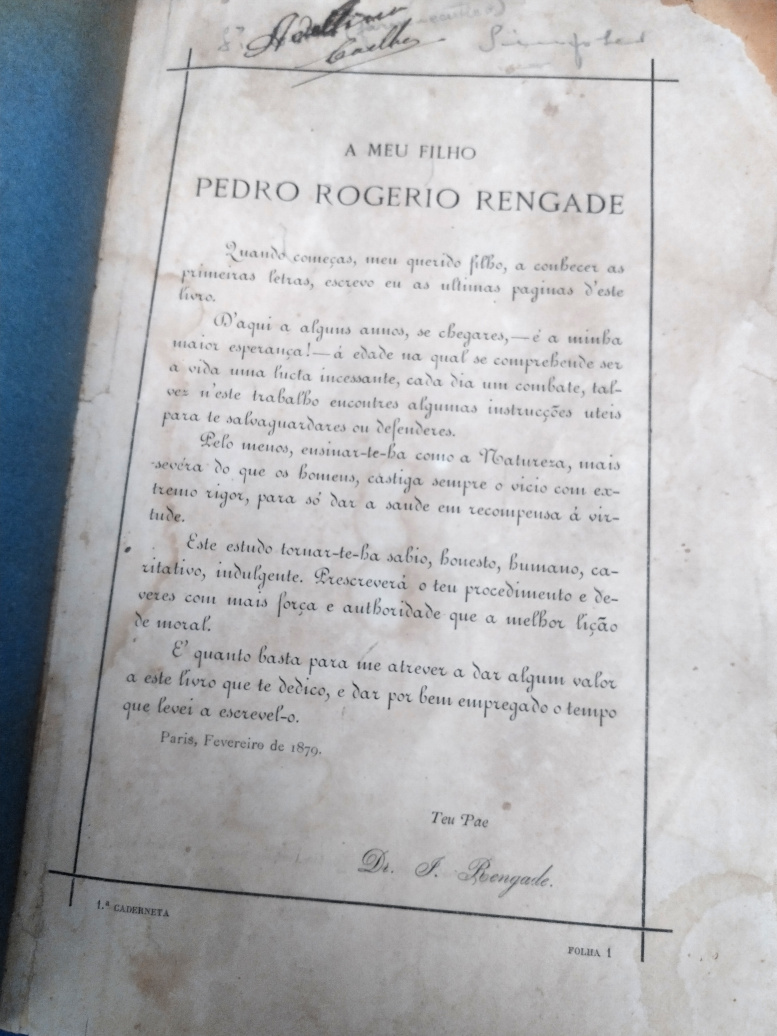 Coelho
A MEU FILHO
PEDRO ROGERIO RENGADE
Quando começas, meu querido filho, a conhecer as
primeiras letras, escrevo eu as ultimas paginas d'este
livro.
D'aqui a alguns annos, se chegares,—é a minha
maior esperança!—á edade na qual se comprehende ser
a vida uma lucta incessante, cada dia um combate, tal-
vez n'este trabalho encontres algumas instrucções uteis
para te salvaguardares ou defenderes.
Pelo menos, ensinar-te-ha como a Natureza, mais
sevéra do que os homens, castiga sempre o vicio com ex-
tremo rigor, para só dar a saude em recompensa á vir-
tude.
Este estudo tornar-te-ha sabio, honesto, humano, ca-
ritativo, indulgente. Prescreverá o teu procedimento e de-
veres com mais força e authoridade que a melhor lição
de moral.
E' quanto basta para me atrever a dar algum valor
a este livro que te dedico, e dar por bem empregado o tempo
que levei a escrevel-o.
Paris, Fevereiro de 1879.
Teu Pae
Dr. J. Rengade.
1.ª CADERNETA
FOLHA 1